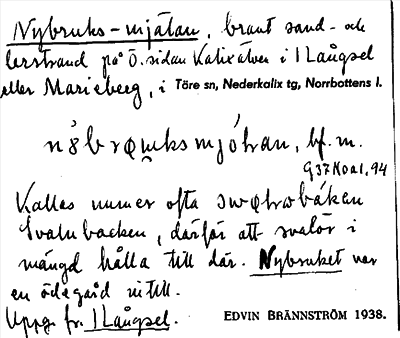 Nybruks-mjälan, brant sand- och
lerstrand på Ö. sidan Kalixälven i Långsel
eller Marieberg, i Töre sn, Nederkalix tg, Norrbottens l.
bf. m.
94
Kallas numer ofta
Svalubacken, därför att svalor i
mängd hålla till där. Nybruket var
en ödegård intill.
Uppg. fr. Långsel.
EDVIN BRÄNNSTRÖM 1938.